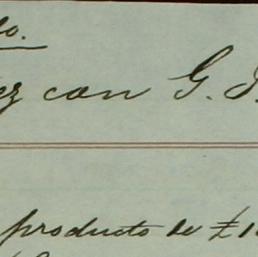 lo.
ez con G. J.
producto de £1